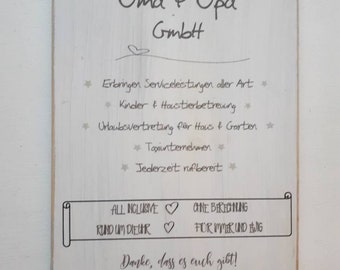 Oma & Opa
GmbH
Erbringen Serviceleistungen aller Art
Kinder & Haustierbetreuung
Urlaubsvertretung für Haus & Garten
Taxiunternehmen
Jederzeit rufbereit
ALL INCLUSIVE OHNE BERECHNUNG
RUND UM DIE UHR FÜR IMMER UND EWIG
Danke, dass es euch gibt!